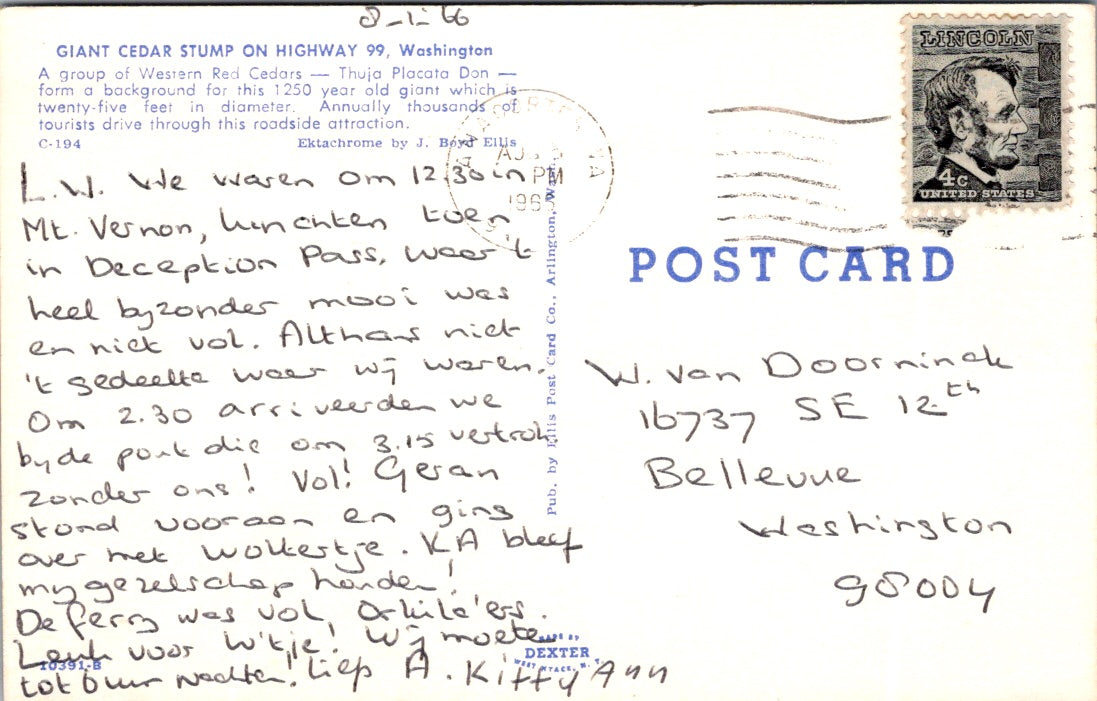 8-1-66
GIANT CEDAR STUMP ON HIGHWAY 99, Washington
A group of Western Red Cedars — Thuja Placata Don —
form a background for this 1250 year old giant which is
twenty-five feet in diameter. Annually thousands of
tourists drive through this roadside attraction.
C-194
Ektachrome by J. Boyd Ellis
L.W. We waren om 12.30 in
Mt. Vernon, lunchten toen
in Deception Pass, waar 't
heel byzonder mooi was
en niet vol. Althans niet
't gedeelte waar wij waren.
Om 2.30 arriveerden we
by de pont die om 3.15 vertrok.
zonder ons! Vol! Geran
stond vooraan en ging
over met Woltertje. KA bleef
my gezelschap houden!
De ferry was vol, Orkila'ers.
Leuk voor W'tje! Wij moeten
tot 6 uur wachten! Liep A. Kitty Ann
10391-B
Pub. by Ellis Post Card Co., Arlington, Wash.
MADE BY
DEXTER
WEST NYACK, N. Y.
ANACORTES WA
PM
LINCOLN
4c
UNITED STATES
POST CARD
W. van Doorninck
16737 SE 12th
Bellevue
Washington
98004